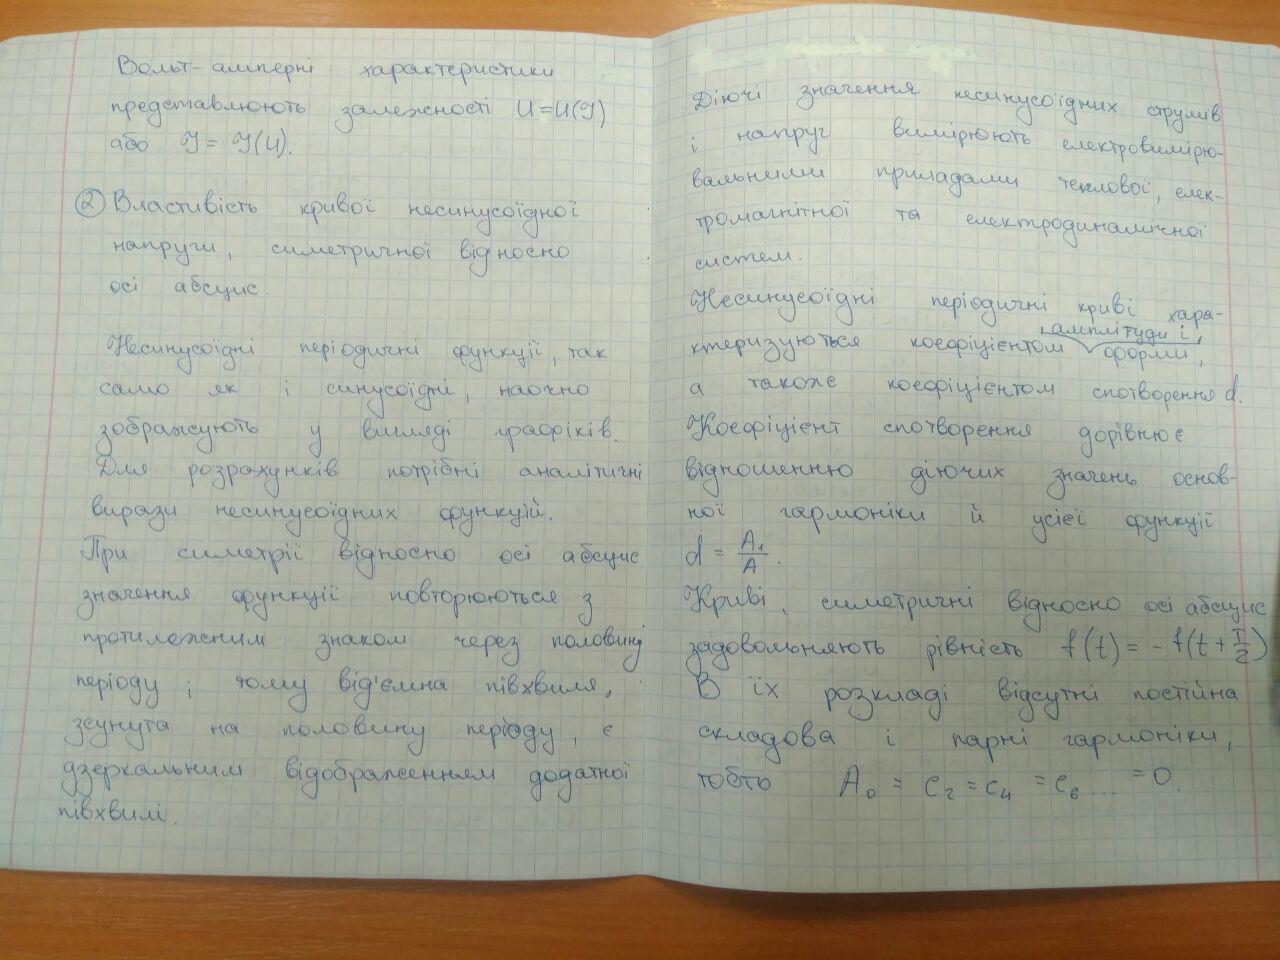 Вольт-амперні характеристики
представлюють залежності U=U(I)
або I = I(U).
② Властивість кривої несинусоїдної
напруги, симетричної відносно
осі абсцис.
Несинусоїдні періодичні функції, так
само як і синусоїдні, наочно
зображують у вигляді графіків.
Для розрахунків потрібні аналітичні
вирази несинусоїдних функцій.
При симетрії відносно осі абсцис
значення функції повторюються з
протилежним знаком через половину
періоду і тому від'ємна півхвиля,
зсунута на половину періоду, є
дзеркальним відображенням додатної
півхвилі.
Діючі значення несинусоїдних струмів
і напруг вимірюють електровимірю-
вальними приладами теплової, елек-
тромагнітної та електродинамічної
систем.
Несинусоїдні періодичні криві хара-
ктеризуються коефіцієнтом амплітуди і форми,
а також коефіцієнтом спотворення d.
Коефіцієнт спотворення дорівнює
відношенню діючих значень основ-
ної гармоніки й усієї функції
d = A₁/A.
Криві, симетричні відносно осі абсцис
задовольняють рівність f(t) = -f(t+T/2)
В їх розкладі відсутні постійна
складова і парні гармоніки,
тобто A₀ = C₂ = C₄ = C₆ ... = 0.